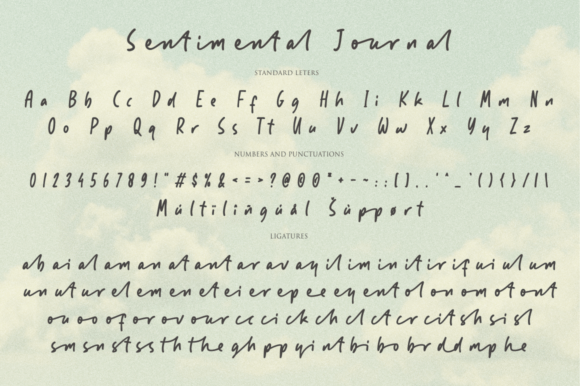 Sentimental Journal
STANDARD LETERS
Aa Bb Cc Dd Ee Ff Gg Hh Ii Kk Ll Mm Nn
Oo Pp Qq Rr Ss Tt Uu Vv Ww Xx Yy Zz
NUMBERS AND PUNCTUATIONS
0123456789!"#$%&<=>?@
Multilingual Support
LIGATURES
ab ai al am an at ant ar av ay il im in it ir if ui ul um
un ut ur el em en et ei er ep ee ey ent ol on om ot ont
ou oo of or ov our cc ci ck ch cl ct cr cit sh si sl
sm sn st ss th the gh pp yi nt bi bo br dd mp he